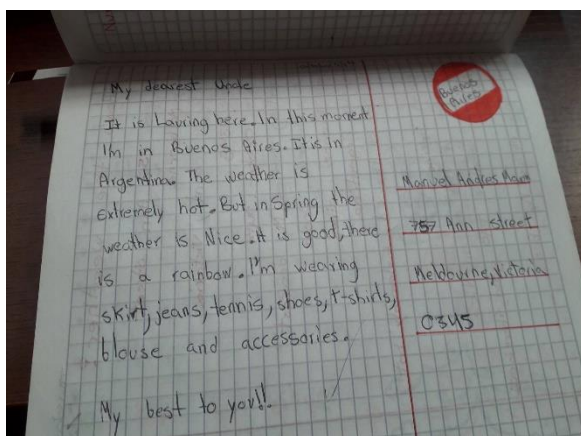 My dearest Uncle
It is Lauring here. In this moment
I'm in Buenos Aires. It is in
Argentina. The weather is
extremely hot. But in Spring the
weather is Nice. It is good, there
is a rainbow. I'm wearing
skirt, jeans, tennis, shoes, t-shirts,
blouse and accessories.
My best to you!!
Buenos
Aires
Manuel Andres
757 Ann street
Melbourne, Victoria
0345